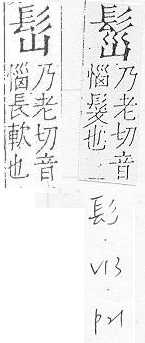 乃老切音
惱髮也
乃老切音
長軟也
髟
·
V13
·
P21